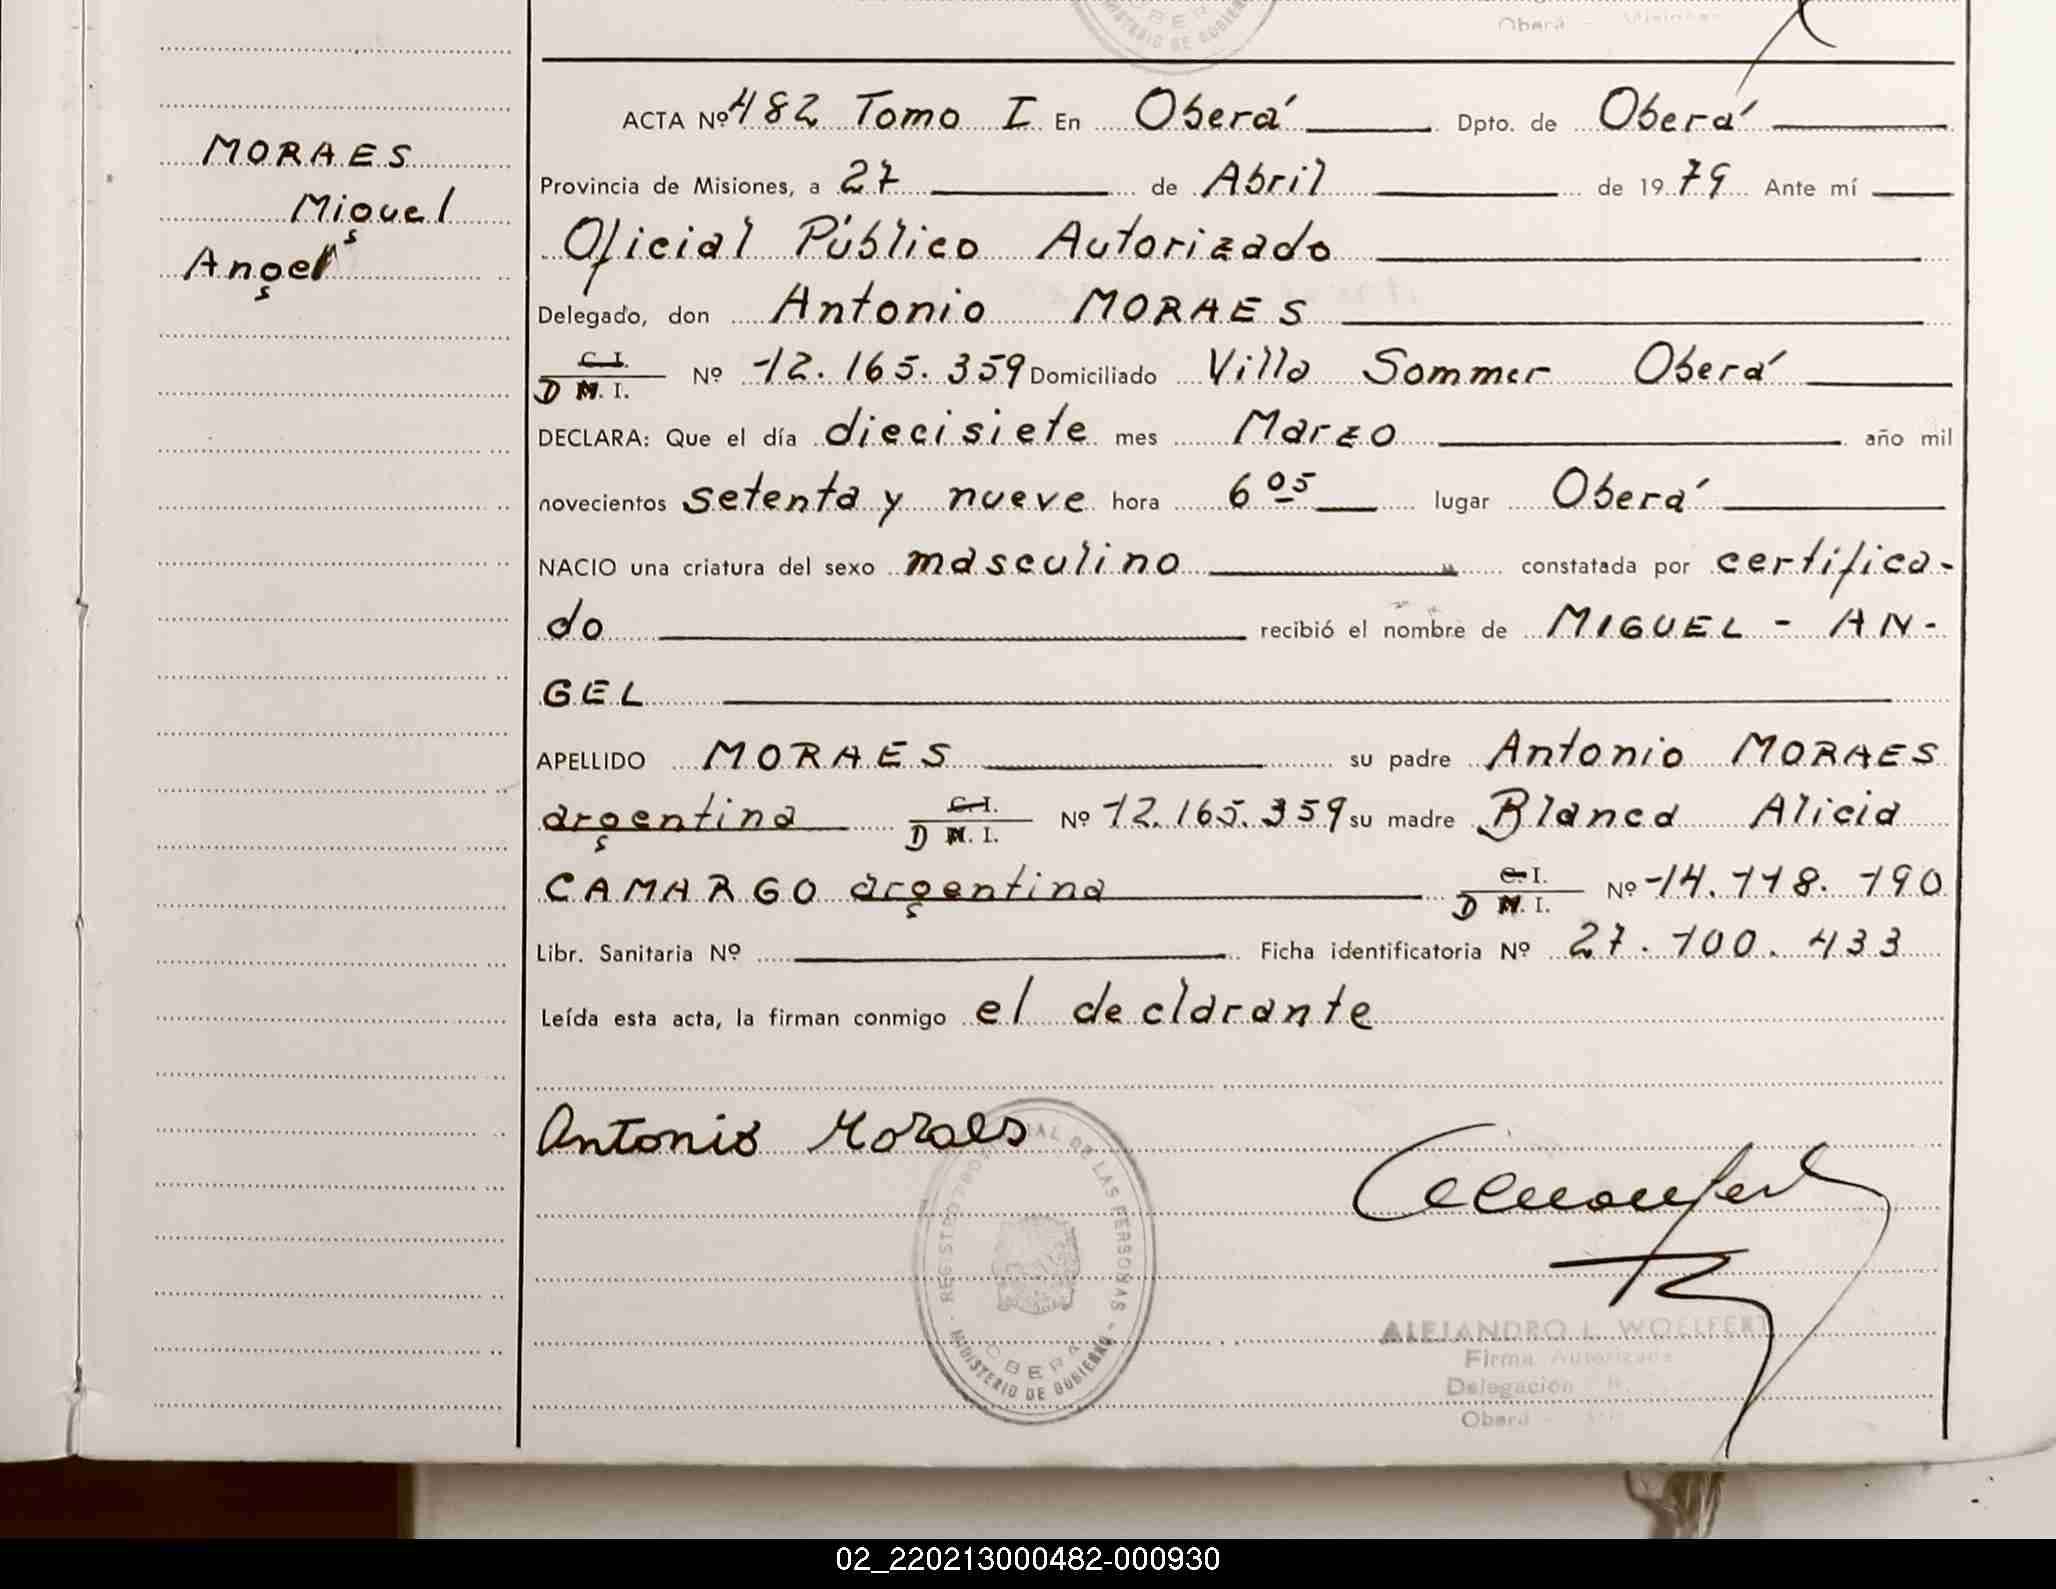 OBERÁ
MINISTERIO DE GOBIERNO
Oberá - Misiones
MORAES
Miguel
Angel
ACTA Nº 482 Tomo I En Oberá Dpto. de Oberá
Provincia de Misiones, a 27 de Abril de 1979 Ante mí
Oficial Público Autorizado
Delegado, don Antonio MORAES
C. I.
D N. I. Nº 12.165.359 Domiciliado Villa Sommer Oberá
DECLARA: Que el día diecisiete mes Marzo año mil
novecientos setenta y nueve hora 6 05 lugar Oberá
NACIO una criatura del sexo masculino constatada por certifica-
do recibió el nombre de MIGUEL - AN-
GEL
APELLIDO MORAES su padre Antonio MORAES
argentina C. I. D N. I. Nº 12.165.359 su madre Blanca Alicia
CAMARGO argentina C. I. D N. I. Nº 14.118.190
Libr. Sanitaria Nº Ficha identificatoria Nº 27.100.433
Leída esta acta, la firman conmigo el declarante
Antonio Moraes
REGISTRO PROVINCIAL DE LAS PERSONAS
OBERÁ
MINISTERIO DE GOBIERNO
ALEJANDRO L. WOELFERT
Firma Autorizada
Delegación
Oberá
02_220213000482-000930